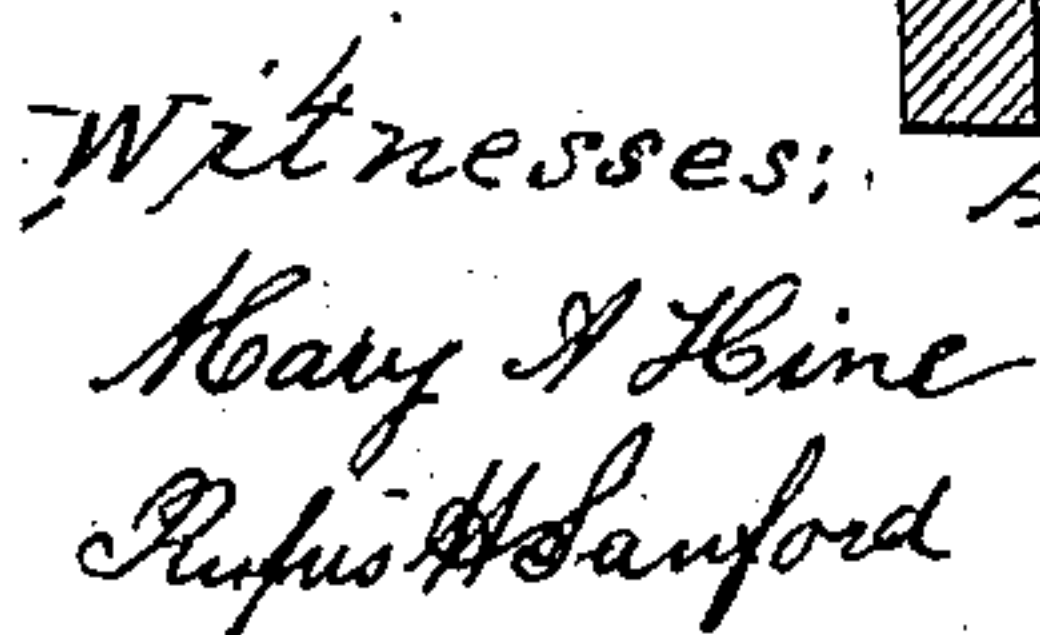 Witnesses:
Mary A Hine
Rufus H Sanford